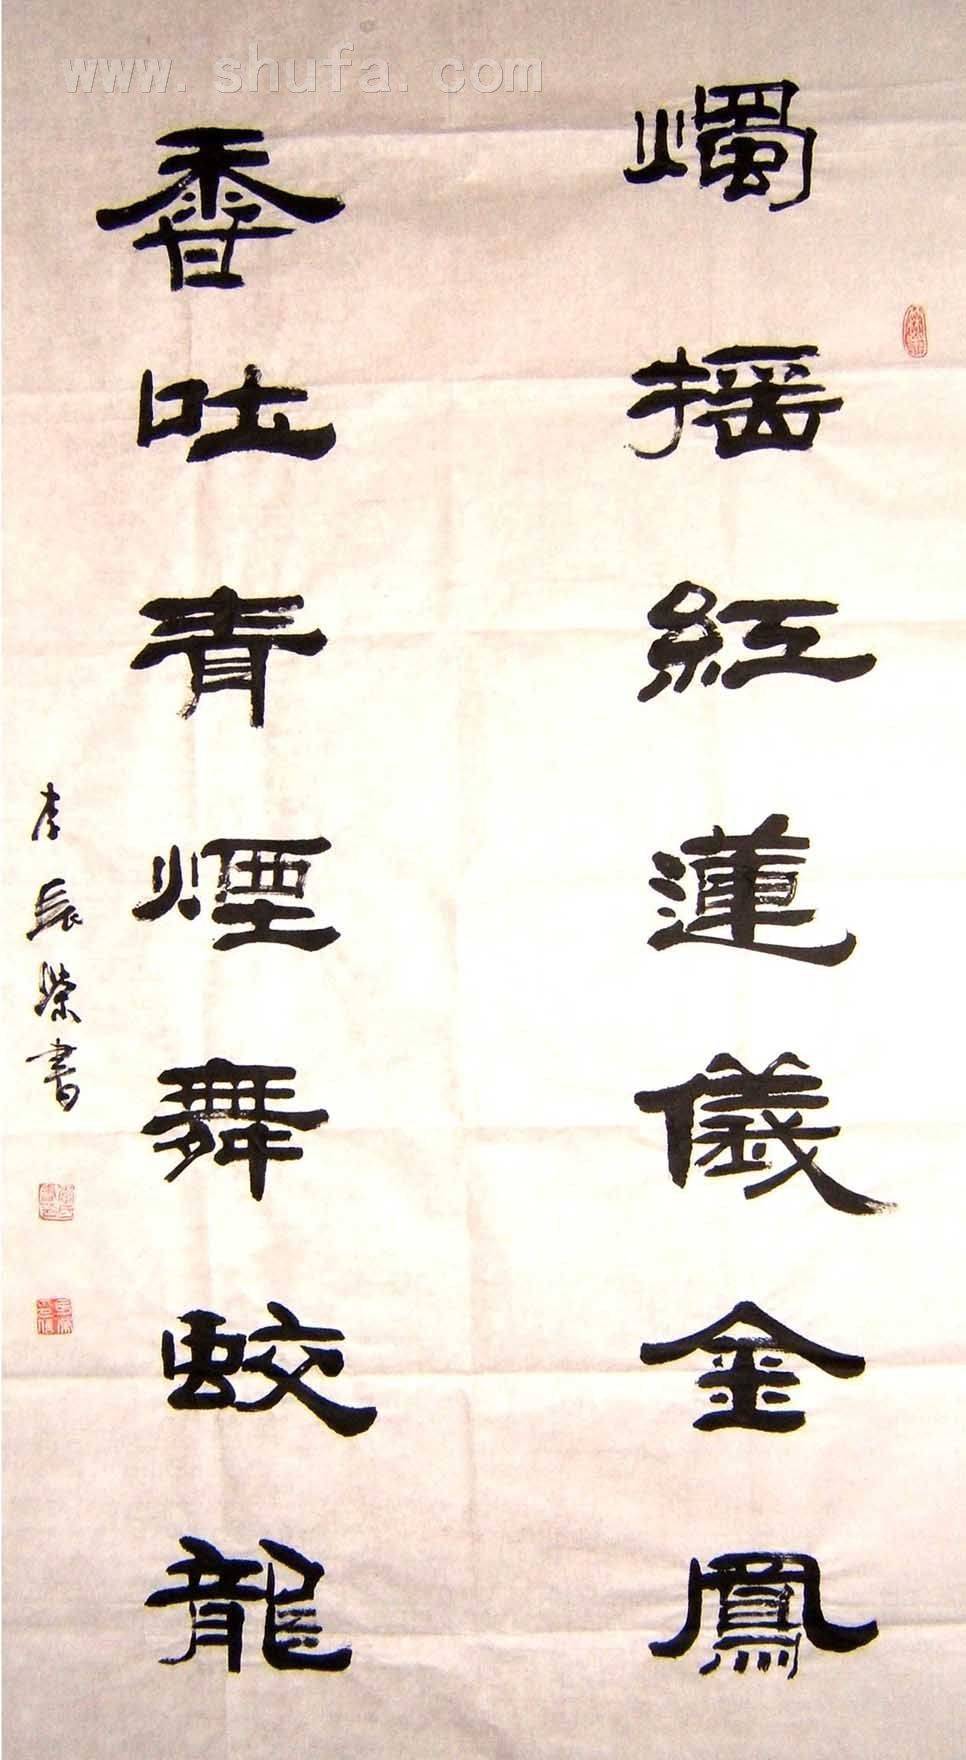 www.shufa.com
燭摇紅蓮儀金鳳
香吐青煙舞蛟龍
李長榮書